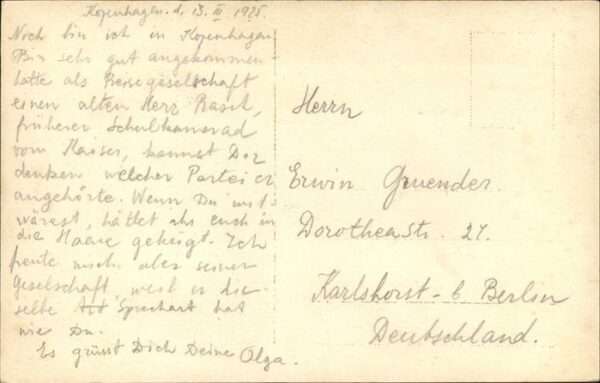 Kopenhagen. d. 13. III 1925.
Noch bin ich in Kopenhagen
Bin sehr gut angekommen
hatte als Reisegesellschaft
einen alten Herr
früherer Schulkamerad
vom Kaiser, kannst Dir
denken welcher Partei er
angehörte. Wenn Du mit
wärest, hättet ihr euch in
die Haare gekriegt. Ich
freute mich aber seiner
Gesellschaft, weil er die-
selbe Art Sprechart hat
wie Du.
Es grüsst Dich Deine Olga.
Herrn
Erwin Gruender.
Dorotheastr. 27.
Karlshorst - b Berlin
Deutschland.